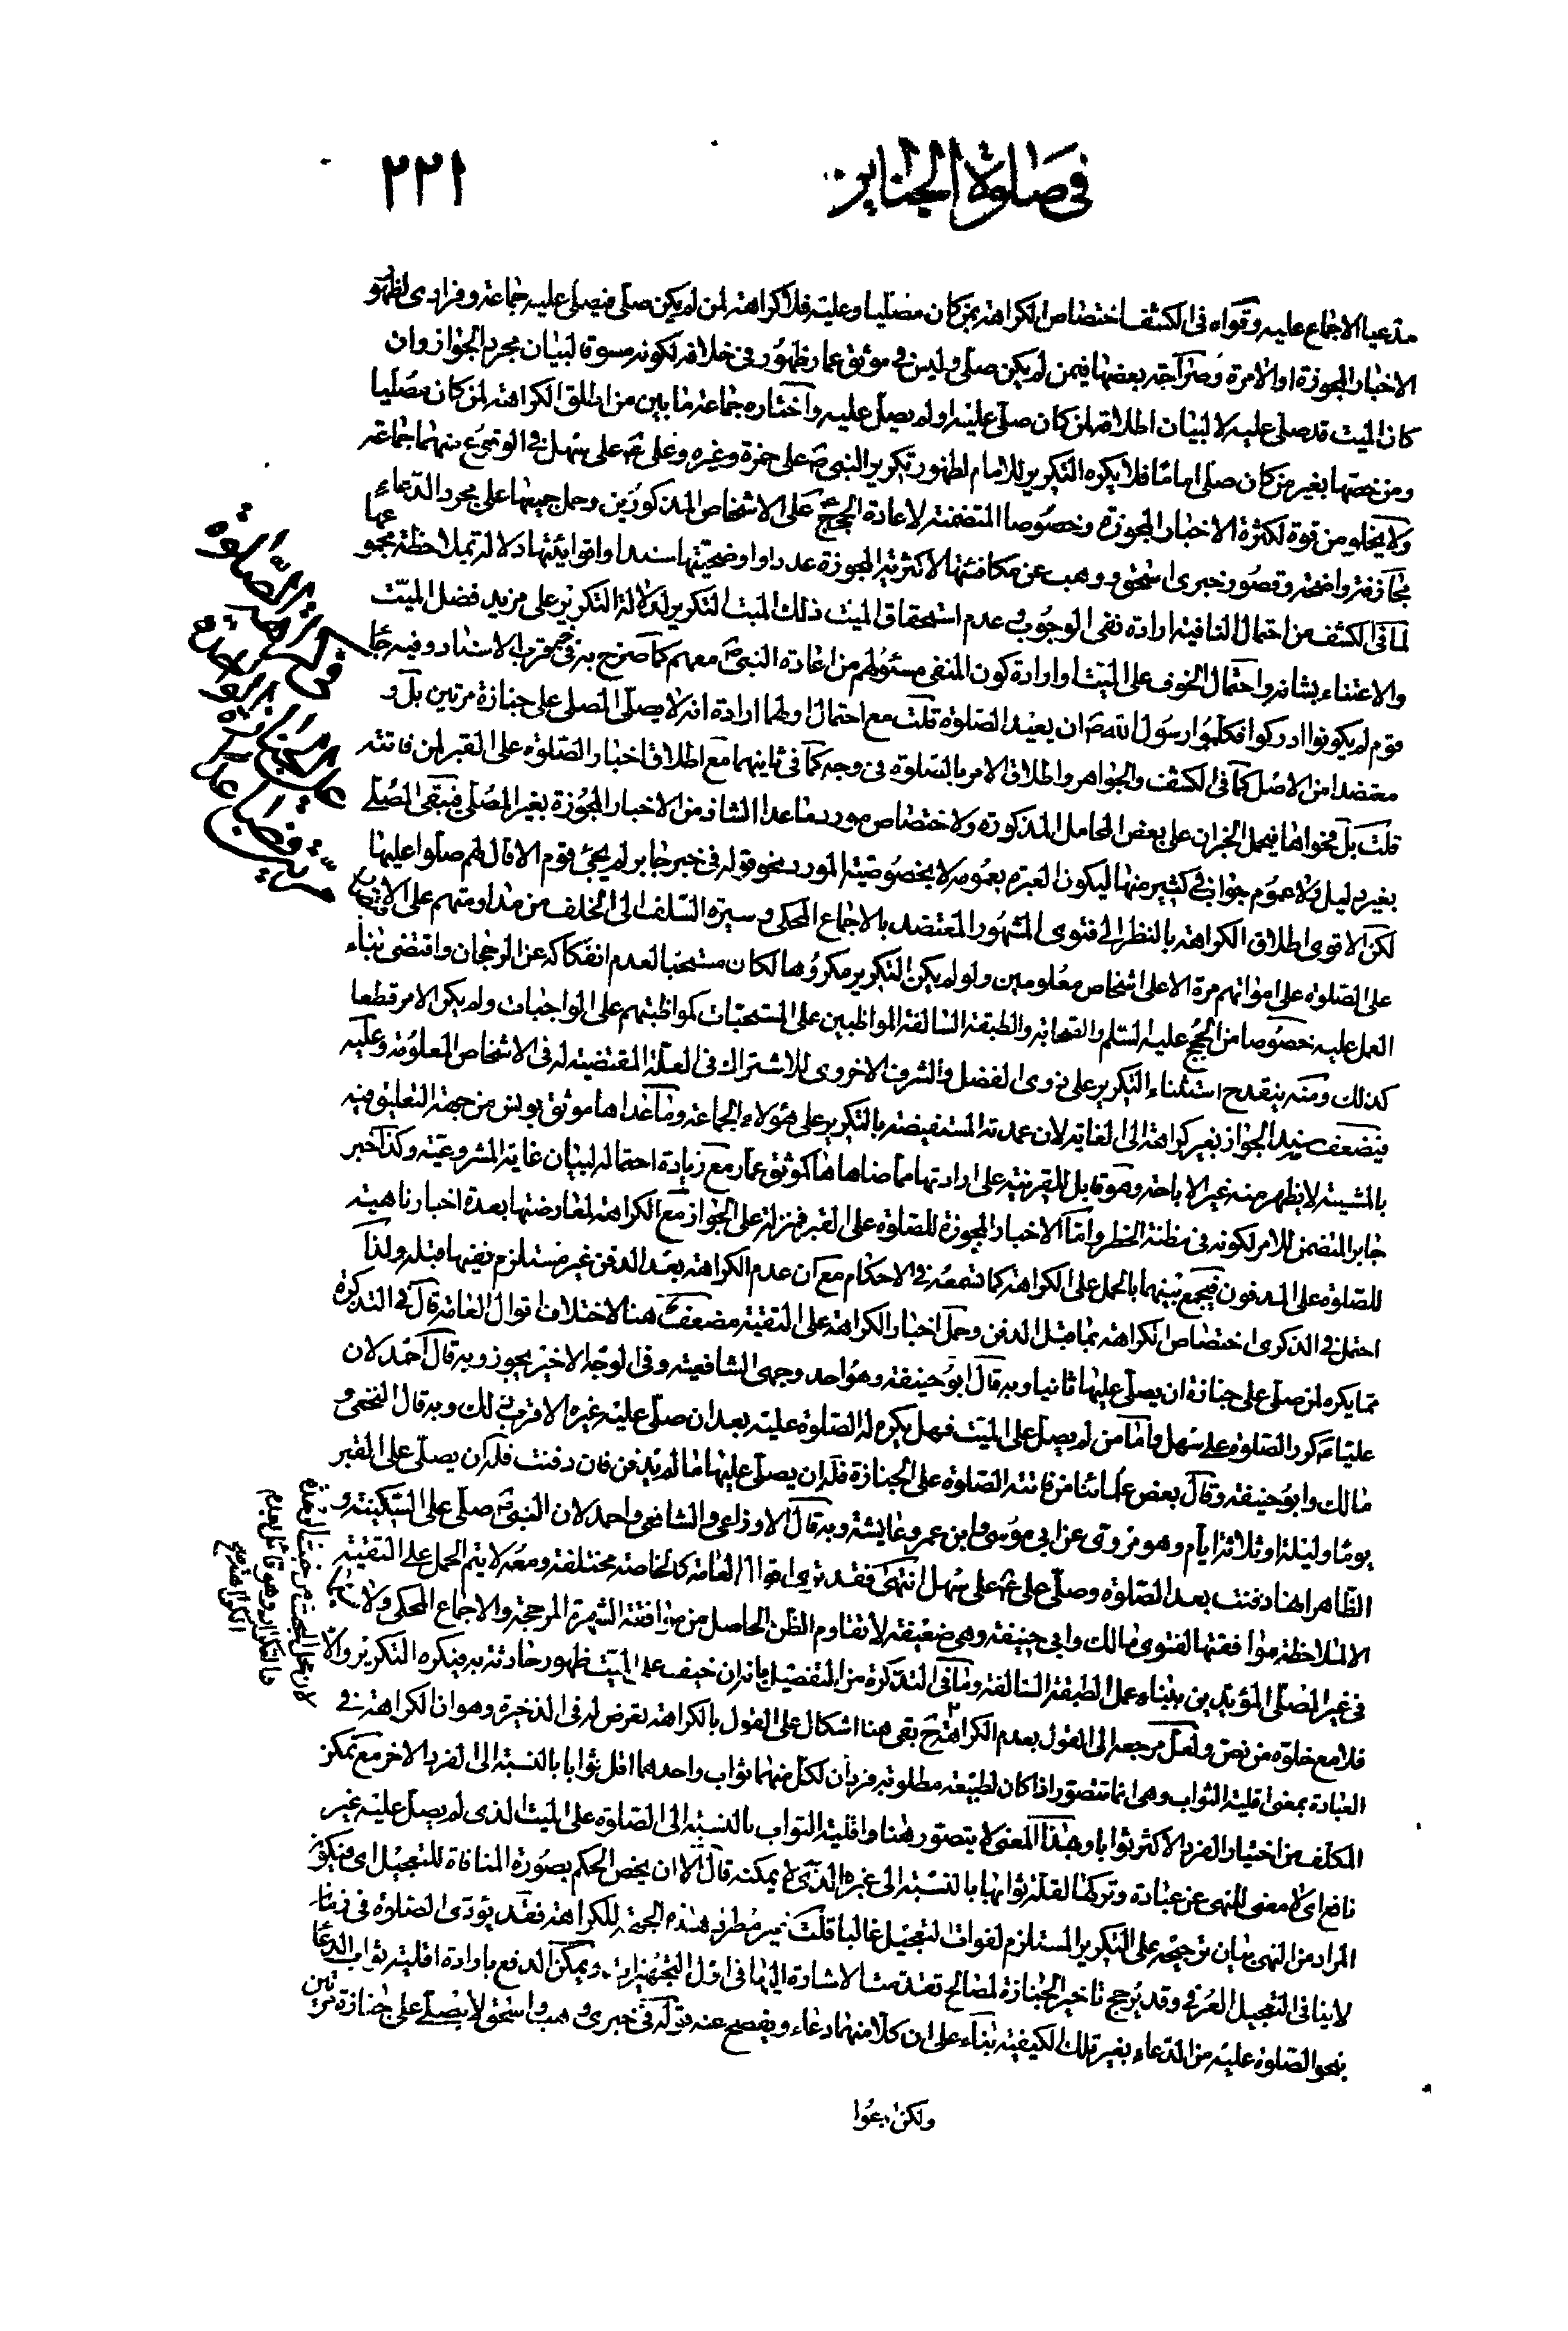 في صلوة الجنايز
٢٢١
مدعيا الاجماع عليه وقواه في الكشف اختصاص الكراهة بمن كان مصليا وعليه فلا كراهة لمن لم يكن صلى فيصلي عليه جماعة وفرادى لظهو
الاخبار المجوزة او الامرة وصراحة بعضها فيمن لم يكن صلى وليس في موثق عمار ظهور في خلافه لكونه مسوقا لبيان مجرد الجواز وان
كان الميت قد صلى عليه لا لبيان اطلاقه لمن كان صلى عليه او لم يصل عليه واختاره جماعة ما بين من اطلق الكراهة لمن كان مصليا
ومن خصها بغير من كان صلى اماما فلا يكره التكرير للامام لظهور تكرير النبي ص على حمزة وغيره وعلي ع على سهل في الوقوع منهما جماعة
ولا يخلو من قوة لكثرة الاخبار المجوزة وخصوصا المتضمنة لاعادة الحجج ع على الاشخاص المذكورين وحمل جميعها على مجرد الدعاء
مجازفة واضحة وقصور خبري اسحق و وهب عن مكافئتها لاكثرية المجوزة عددا واوضحيتها سندا واقوائيتها دلالة بملاحظة مجمو عها
لما في الكشف من احتمال النافية ارادة نفي الوجوب وعدم استحقاق الميت ذلك المبت التكرير لدلالة التكرير على مزيد فضل الميت
والاعتناء بشانه واحتمال الخوف على الميت او ارادة كون المنفي مسئولهم من اعادة النبي ص معهم كما صرح به في خبر قرب الاسناد وفيه جاء
قوم لم يكونوا ادركوا فكلموا رسول الله ص ان يعيد الصلوة قلت مع احتمال اولهما ارادة انه لا يصلي المصلي على جنازة مرتين بل و
معتضدا من الاصل كما في الكشف والجواهر واطلاق الامر بالصلوة في وجه كما في ثانيهما مع اطلاق اخبار الصلوة على القبر لمن فاتته
قلت بل فحواها فيحمل الخبران على بعض المحامل المذكورة ولاختصاص مورد ما عدا الشاذ من الاخبار المجوزة بغير المصلي فيبقى المصلي
بغير دليل ولا عموم جواز في كثير منها ليكون العبرة بعمومه لا بخصوصية المورد نحو قوله في خبر جابر لم يجئ قوم الا قال لهم صلوا عليها
لكن الاقوى اطلاق الكراهة بالنظر الى فتوى المشهور المعتضد بالاجماع المحكي وسيرة السلف الى الخلف من مداومتهم على الاقتصار
على الصلوة على امواتهم مرة الا على اشخاص معلومين ولو لم يكن التكرير مكروها لكان مستحبا لعدم انفكاكه عن الرجحان واقتضى بناء
العمل عليه خصوصا من الحجج عليهم السلم والصحابة والطبقة السالفة المواظبين على المستحبات كمواظبتهم على الواجبات ولم يكن الامر قطعا
كذلك ومنه ينقدح استثناء التكرير على ذوي الفضل والشرف الاخروي للاشتراك في العلة المقتضية له في الاشخاص المعلومة وعليه
فيضعف سند الجواز بغير كراهة الى الغاية لان عمدته المستفيضة بالتكرير على هؤلاء الجماعة وما عداها موثق يونس من جهة التعليق فيه
بالمشيئة لا يظهر منه غير الاباحة وهو قابل للقرينة على ارادتها مما ضاهاها كموثق عمار مع زيادة احتماله لبيان غاية المشروعية وكذا خبر
جابر المتضمن للامر لكونه في مظنة الخطر واما الاخبار المجوزة للصلوة على القبر فمنزلة على الجواز مع الكراهة لمعارضتها بعدة اخبار ناهية
للصلوة على المدفون فيجمع بينهما بالحمل على الكراهة كما تسمعه في الاحكام مع ان عدم الكراهة بعد الدفن غير مستلزم نفيها قبله ولذا
احتمل في الذكرى اختصاص الكراهة بما قبل الدفن وحمل اخبار الكراهة على التقية مضعف هنا لاختلاف اقوال العامة قال في التذكرة
تما يكره لمن صلى على جنازة ان يصلي عليها ثانيا وبه قال ابو حنيفة وهو احد وجهي الشافعية وفي الوجه الاخير يجوز وبه قال احمد لان
عليا ع كرر الصلوة على سهل واما من لم يصل على الميت فهل يكره له الصلوة عليه بعد ان صلى عليه غيره الاقرب ذلك وبه قال النخعي و
مالك وابو حنيفة وقال بعض علمائنا من فاتته الصلوة على الجنازة فله ان يصلي عليها ما لم يدفن فان دفنت فله ان يصلي على القبر
يوما وليلة او ثلاثة ايام وهو مروي عن ابي موسى وابن عمر وعايشة وبه قال الاوزاعي والشافعي واحمد لان النبي ص صلى على السكينة و
الظاهر انها دفنت بعد الصلوة وصلى علي ع على سهل انتهى فقد ترى اقوال العامة كالخاصة مختلفة ومعه لا يتم الحمل على التقية
الا لملاحظة موافقتها لفتوى مالك وابي حنيفة وهي ضعيفة لا تقاوم الظن الحاصل من موافقة الشهرة المرجحة والاجماع المحكي ولا سيما
في غير المصلي المؤيدين ببناء عمل الطبقة السالفة وما في التذكرة من التفصيل بانه ان خيف على الميت ظهور حادثة به فيكره التكرير والا
فلا مع خلوه من نص ولعل مرجعه الى القول بعدم الكراهة ح بقي هنا اشكال على القول بالكراهة تعرض له في الذخيرة وهو ان الكراهة في
العبادة بمعنى اقلية الثواب وهي انما تتصور اذا كان لطبيعة مطلوبة فردان لكل منهما ثواب واحدهما اقل ثوابا بالنسبة الى الفرد الاخر مع تمكن
المكلف من اختيار الفرد الاكثر ثوابا وهذا المعنى لا يتصور هنا واقلية الثواب بالنسبة الى الصلوة على الميت الذي لم يصل عليه غير
نافع اي لا معنى للنهي عن عبادة وتركها لقلة ثوابها بالنسبة الى غيره الذي لا يمكنه قال الا ان يخص الحكم بصورة المنافاة للتعجيل اي فيكون
المراد من النهي بيان ترجيحه على التكرير المستلزم لفوات التعجيل غالبا قلت غير مطرد هذه الجهة للكراهة فقد يؤدي الصلوة في زمان
لا ينافي التعجيل العرفي وقد يرجح تاخير الجنازة لمصالح تقدمت الاشارة اليها في اول التجهيزات ويمكن الدفع بارادة اقلية ثواب الدعاء
بنحو الصلوة عليه من الدعاء بغير تلك الكيفية بناء على ان كلا منهما دعاء ويفصح عنه قوله في خبري وهب واسحق لا يصلي على جنازة مرتين
ولكن ادعوا